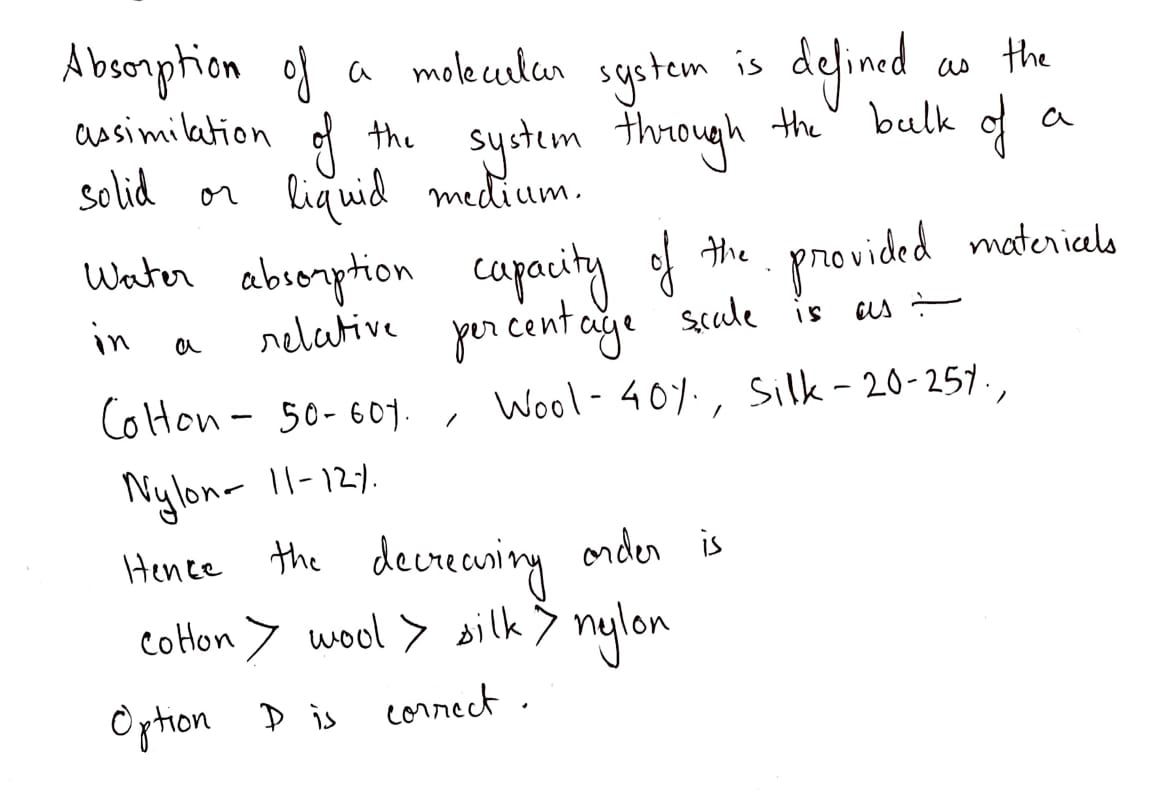 Absorption of a molecular system is defined as the
assimilation of the system through the bulk of a
solid or liquid medium.
Water absorption capacity of the provided materials
in a relative percentage scale is as :-
Cotton - 50-60%. , Wool - 40%., Silk - 20-25%.,
Nylon - 11-12%.
Hence the decreasing order is
cotton > wool > silk > nylon
Option D is correct.